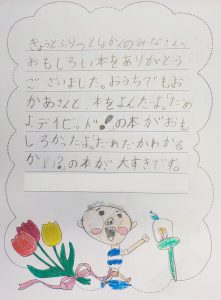 きょうとふりつとしょかんのみなさんへ
おもしろい本をありがとう
ございました。おうちでもお
かあさんと、本をよんだよ。「だめ
よデイビッド!」の本がおも
しろかったよ。「たれ・たかわかる
かい?」の本が大すきです。